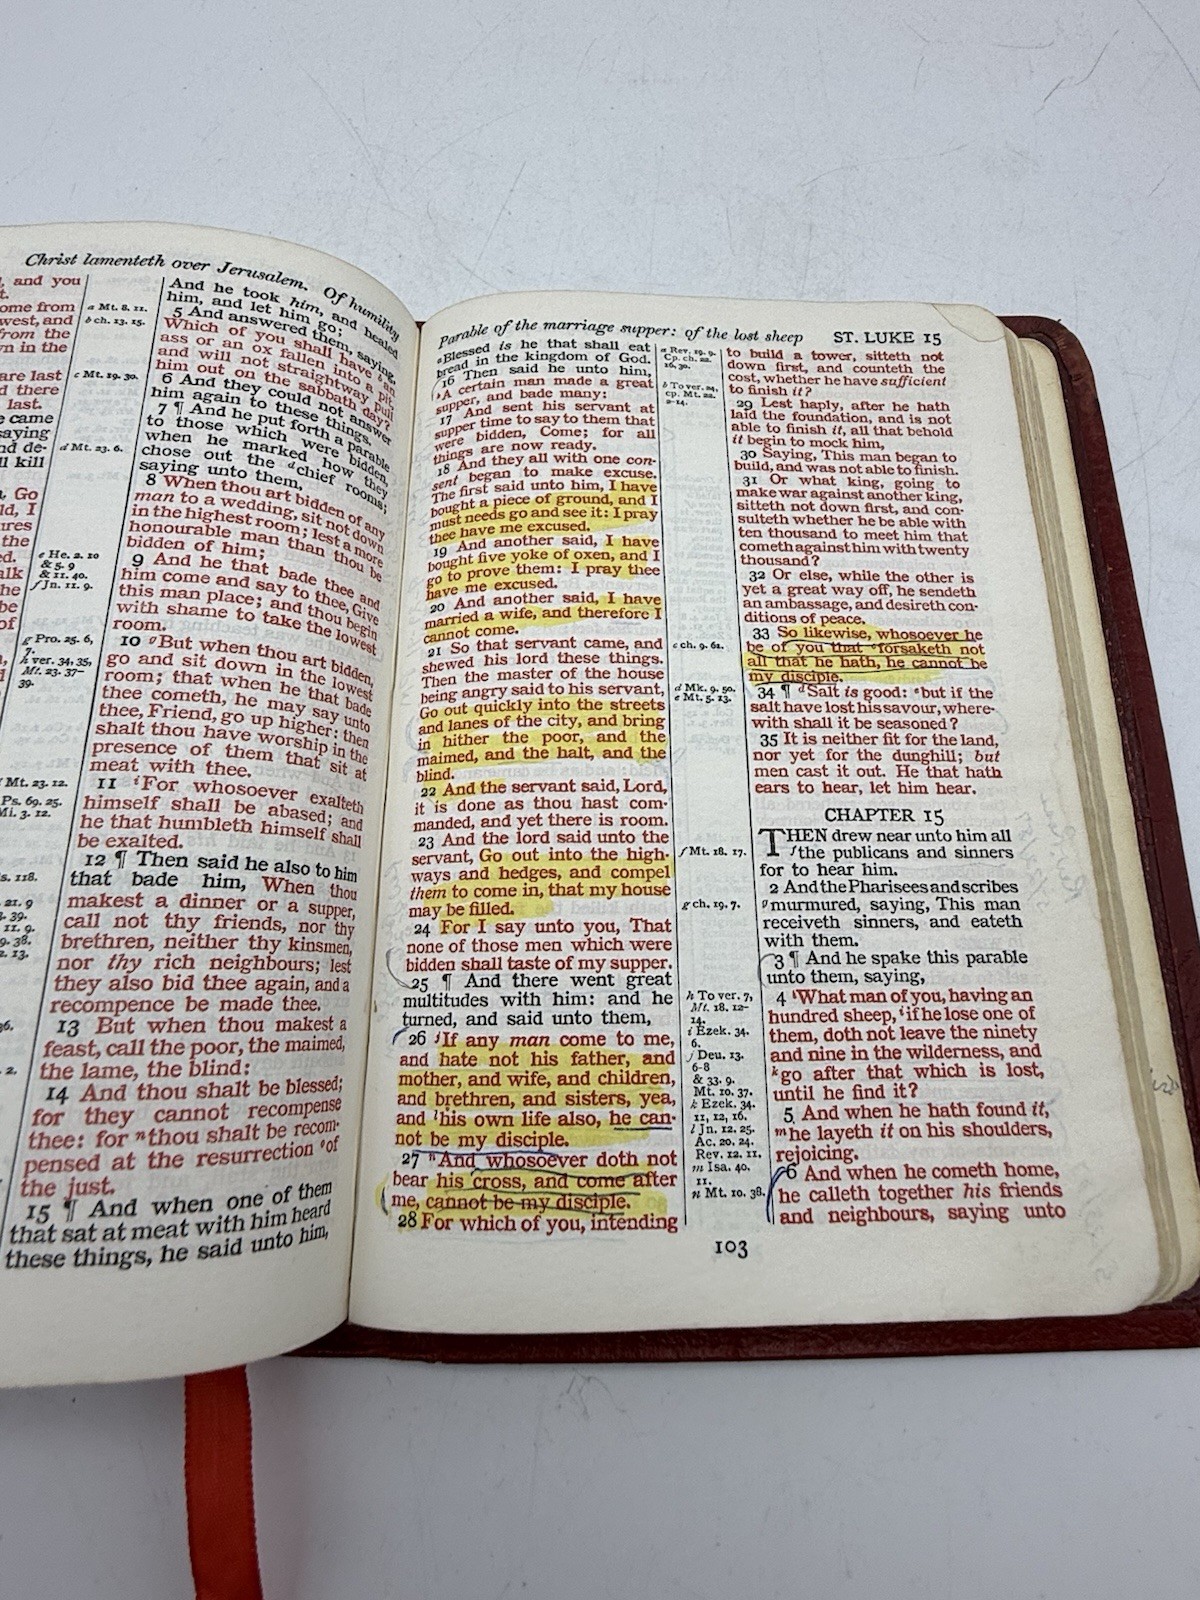 Christ lamenteth over Jerusalem. Of humility
, and you
t.
ome from
west, and
from the
n in the
are last
d there
last.
e came
saying
nd de-
ll kill
Go
ld, I
ures
the
ed.
alk
he
be
of
a Mt. 8. 11.
b ch. 13. 15.
c Mt. 19. 30.
d Mt. 23. 6.
e He. 2. 10
& 5. 9
& 11. 40.
f Jn. 11. 9.
g Pro. 25. 6,
7.
h ver. 34, 35,
Mt. 23. 37–
39.
Mt. 23. 12.
Ps. 69. 25.
Mi. 3. 12.
s. 118.
21. 9
39.
11. 9.
9. 38.
2. 13.
36.
2.
And he took him, and healed
him, and let him go;
5 And answered them, saying,
Which of you shall have an
ass or an ox fallen into a pit,
and will not straightway pull
him out on the sabbath day?
6 And they could not answer
him again to these things.
7 ¶ And he put forth a parable
to those which were bidden,
when he marked how they
chose out the d chief rooms;
saying unto them,
8 When thou art bidden of any
man to a wedding, sit not down
in the highest room; lest a more
honourable man than thou be
bidden of him;
9 And he that bade thee and
him come and say to thee, Give
this man place; and thou begin
with shame to take the lowest
room.
10 g But when thou art bidden,
go and sit down in the lowest
room; that when he that bade
thee cometh, he may say unto
thee, Friend, go up higher: then
shalt thou have worship in the
presence of them that sit at
meat with thee.
11 i For whosoever exalteth
himself shall be abased; and
he that humbleth himself shall
be exalted.
12 ¶ Then said he also to him
that bade him, When thou
makest a dinner or a supper,
call not thy friends, nor thy
brethren, neither thy kinsmen,
nor thy rich neighbours; lest
they also bid thee again, and a
recompence be made thee.
13 But when thou makest a
feast, call the poor, the maimed,
the lame, the blind:
14 And thou shalt be blessed;
for they cannot recompense
thee: for n thou shalt be recom-
pensed at the resurrection o of
the just.
15 ¶ And when one of them
that sat at meat with him heard
these things, he said unto him,
Parable of the marriage supper: of the lost sheep ST. LUKE 15
a Blessed is he that shall eat
bread in the kingdom of God.
16 Then said he unto him,
b A certain man made a great
supper, and bade many:
17 And sent his servant at
supper time to say to them that
were bidden, Come; for all
things are now ready.
18 And they all with one con-
sent began to make excuse.
The first said unto him, I have
bought a piece of ground, and I
must needs go and see it: I pray
thee have me excused.
19 And another said, I have
bought five yoke of oxen, and I
go to prove them: I pray thee
have me excused.
20 And another said, I have
married a wife, and therefore I
cannot come.
21 So that servant came, and
shewed his lord these things.
Then the master of the house
being angry said to his servant,
Go out quickly into the streets
and lanes of the city, and bring
in hither the poor, and the
maimed, and the halt, and the
blind.
22 And the servant said, Lord,
it is done as thou hast com-
manded, and yet there is room.
23 And the lord said unto the
servant, Go out into the high-
ways and hedges, and compel
them to come in, that my house
may be filled.
24 For I say unto you, That
none of those men which were
bidden shall taste of my supper.
25 ¶ And there went great
multitudes with him: and he
turned, and said unto them,
26 j If any man come to me,
and hate not his father, and
mother, and wife, and children,
and brethren, and sisters, yea,
and l his own life also, he can-
not be my disciple.
27 n And whosoever doth not
bear his cross, and come after
me, cannot be my disciple.
28 For which of you, intending
a Rev. 19. 9.
Cp. ch. 22.
16, 30.
b To ver. 24,
cp. Mt. 22.
2-14.
c ch. 9. 61.
d Mk. 9. 50.
e Mt. 5. 13.
f Mt. 18. 17.
g ch. 19. 7.
h To ver. 7,
Mt. 18. 12–
14.
i Ezek. 34.
6.
j Deu. 13.
6-8
& 33. 9.
Mt. 10. 37.
k Ezek. 34.
11, 12, 16.
l Jn. 12. 25.
Ac. 20. 24.
Rev. 12. 11.
m Isa. 40.
11.
n Mt. 10. 38.
to build a tower, sitteth not
down first, and counteth the
cost, whether he have sufficient
to finish it?
29 Lest haply, after he hath
laid the foundation, and is not
able to finish it, all that behold
it begin to mock him,
30 Saying, This man began to
build, and was not able to finish.
31 Or what king, going to
make war against another king,
sitteth not down first, and con-
sulteth whether he be able with
ten thousand to meet him that
cometh against him with twenty
thousand?
32 Or else, while the other is
yet a great way off, he sendeth
an ambassage, and desireth con-
ditions of peace.
33 So likewise, whosoever he
be of you that c forsaketh not
all that he hath, he cannot be
my disciple.
34 ¶ d Salt is good: e but if the
salt have lost his savour, where-
with shall it be seasoned?
35 It is neither fit for the land,
nor yet for the dunghill; but
men cast it out. He that hath
ears to hear, let him hear.
CHAPTER 15
THEN drew near unto him all
f the publicans and sinners
for to hear him.
2 And the Pharisees and scribes
g murmured, saying, This man
receiveth sinners, and eateth
with them.
3 ¶ And he spake this parable
unto them, saying,
4 h What man of you, having an
hundred sheep, i if he lose one of
them, doth not leave the ninety
and nine in the wilderness, and
k go after that which is lost,
until he find it?
5 And when he hath found it,
m he layeth it on his shoulders,
rejoicing.
6 And when he cometh home,
he calleth together his friends
and neighbours, saying unto
103